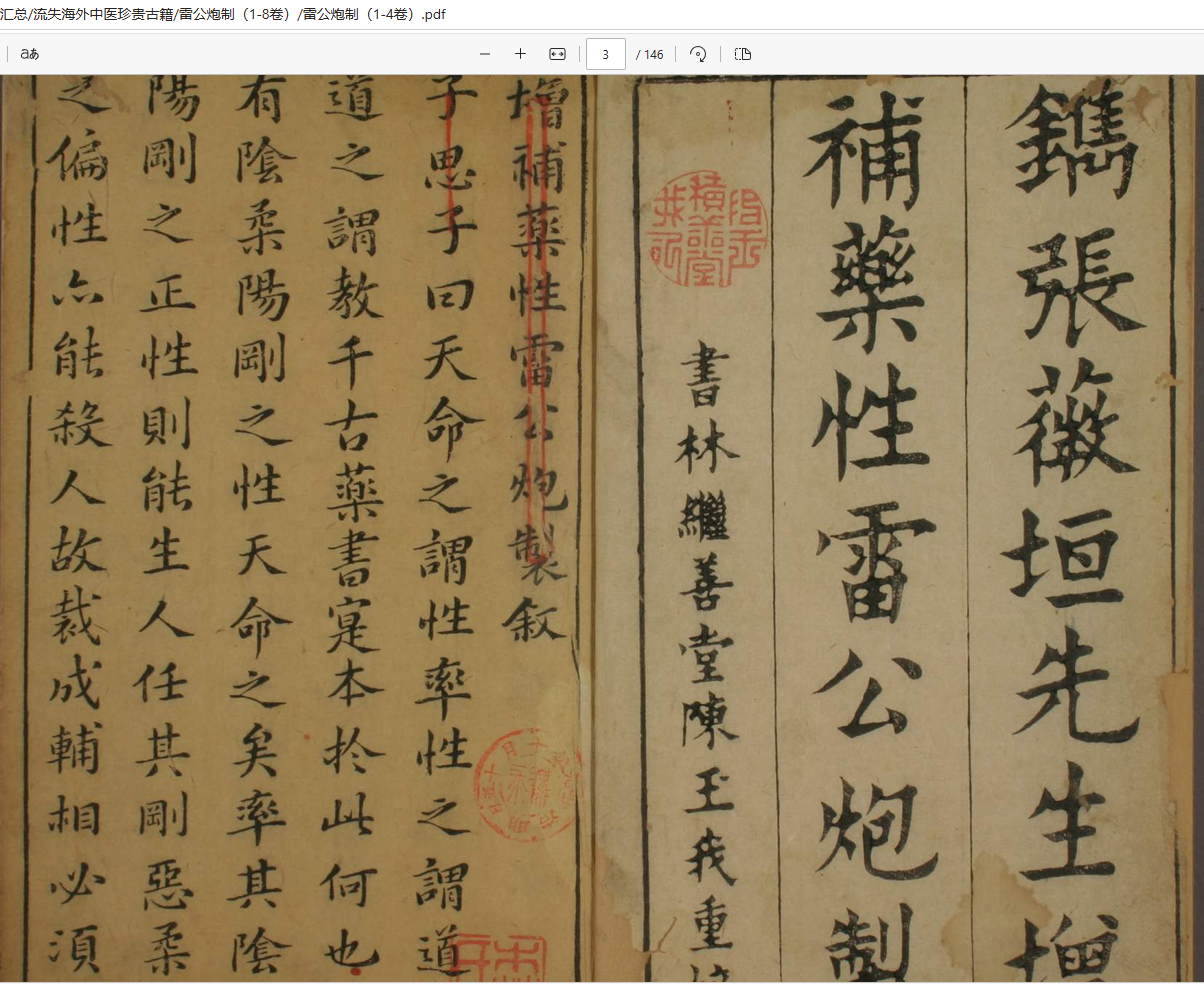 汇总/流失海外中医珍贵古籍/雷公炮制（1-8卷）/雷公炮制（1-4卷）.pdf
aあ
3
/ 146
鐫張薇垣先生增
補藥性雷公炮製
書林繼善堂陳玉我重
積善堂
增補藥性雷公炮製敘
子思子曰天命之謂性率性之謂道
道之謂教千古藥書寔本於此何也
有陰柔陽剛之性天命之矣率其陰
陽剛之正性則能生人任其剛惡柔
之偏性亦能殺人故裁成輔相必須